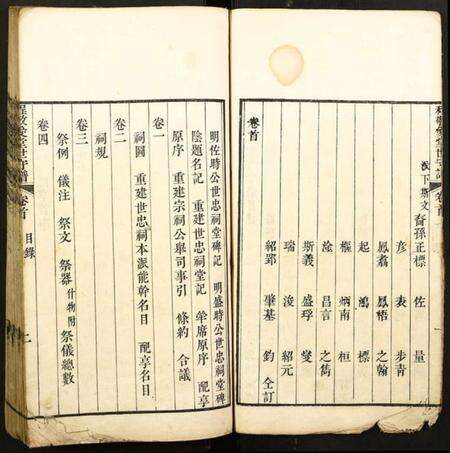 派下斯文裔孫正標 佐 量
彦 表 步青
鳳翥 鳳梧 之翰
起 鴻 標
樞 炳南 桓
淦 昌言 之雋
斯義 盛琈 燮
瑞 浚 紹元
紹郢 肇基 鈞 仝訂
卷首
明佐時公世忠祠堂碑記 明盛時公世忠祠堂碑
陰題名記 重建世忠祠堂記 牟席原序 配享
原序 重建宗祠公舉司事引 條約 合議
卷一
祠圖 重建世忠祠本派能幹名目 配享名目
卷二
祠規
卷三
祭例 儀注 祭文 祭器什物附 祭儀總數
卷四
卷首 目錄